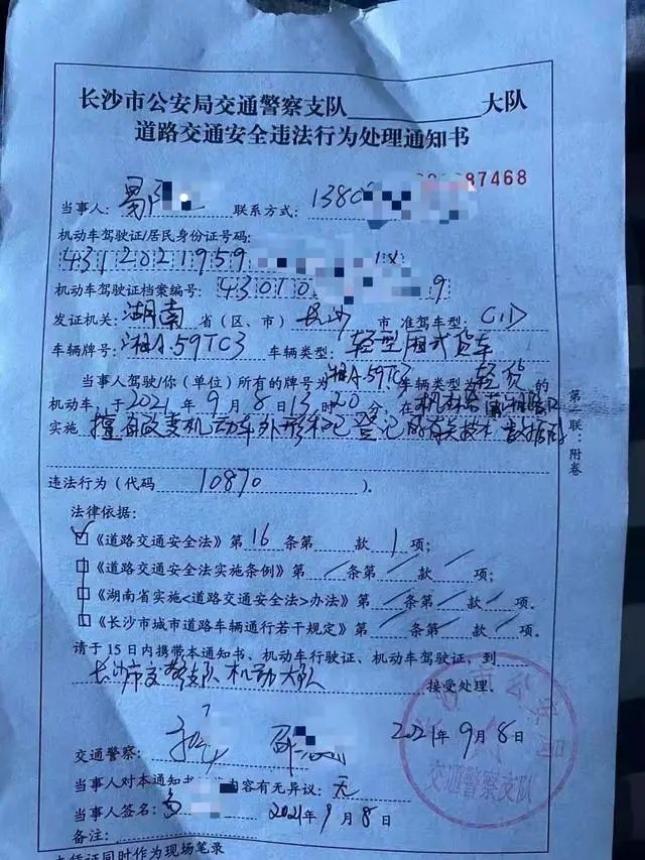 长沙市公安局交通警察支队 大队
道路交通安全违法行为处理通知书
87468
当事人: 联系方式: 1380
机动车驾驶证/居民身份证号码:
4312021959 1X
机动车驾驶证档案编号: 43010 9
发证机关: 湖南 省(区、市) 长沙 市 准驾车型: C1D
车辆牌号: 湘A·59TC3 车辆类型: 轻型厢式货车
当事人驾驶/你(单位)所有的牌号为湘A·59TC3 车辆类型为 轻货 的
机动车,于 2021 年 9 月 8 日 13 时 20 分,在
实施 擅自改变机动车外形和已登记的有关技术数据的
违法行为(代码 10870 )。
法律依据:
☑《道路交通安全法》第 16 条第 款 1 项;
□《道路交通安全法实施条例》第 / 条第 / 款 / 项;
□《湖南省实施<道路交通安全法>办法》第 / 条第 / 款 / 项。
□《长沙市城市道路车辆通行若干规定》第 / 条第 / 款 / 项。
请于 15 日内携带本通知书、机动车行驶证、机动车驾驶证,到
长沙市交警支队机动大队 接受处理。
2021年9月8日
交通警察:
交通警察支队
当事人对本通知书 内容有无异议: 无
当事人签名: 2021年9月8日
备注:
本凭证同时作为现场笔录
第二联:附卷